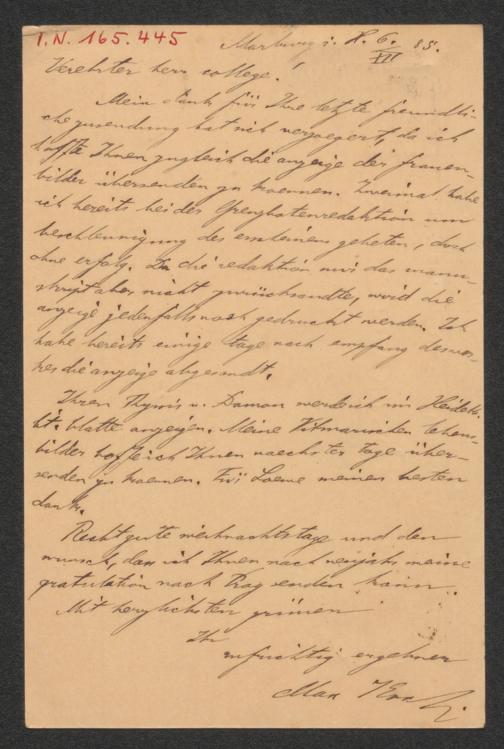 I.N. 165.445
Marburg i. H. 6. XII 85.
Verehrter herr college!
Mein dank für Ihre letzte freundli-
che zusendung hat sich verzoegert, da ich
hoffte Ihnen zugleich die anzeige der frauen-
bilder übersenden zu koennen. Zweimal habe
ich bereits bei der Grenzbotenredaktion um
beschleunigung des erscheinens gebeten, doch
ohne erfolg. Da die redaktion mir das manu-
skript aber nicht zurücksandte, wird die
anzeige jedenfalls noch gedruckt werden. Ich
habe bereits einige tage nach empfang des wer-
kes die anzeige abgesandt.
Ihren Thyrsis u. Damon werde ich im
blatte anzeigen. Meine Vilmarischen lebens-
bilder hoffe ich Ihnen naechster tage über-
senden zu koennen. Für Loewe meinen besten
dank.
Recht gute weihnachtstage und den
wunsch, dass ich Ihnen nach neujahr meine
gratulation nach Prag senden kann.
Mit herzlichsten grüssen
Ihr
aufrichtig ergebener
Max Koch.